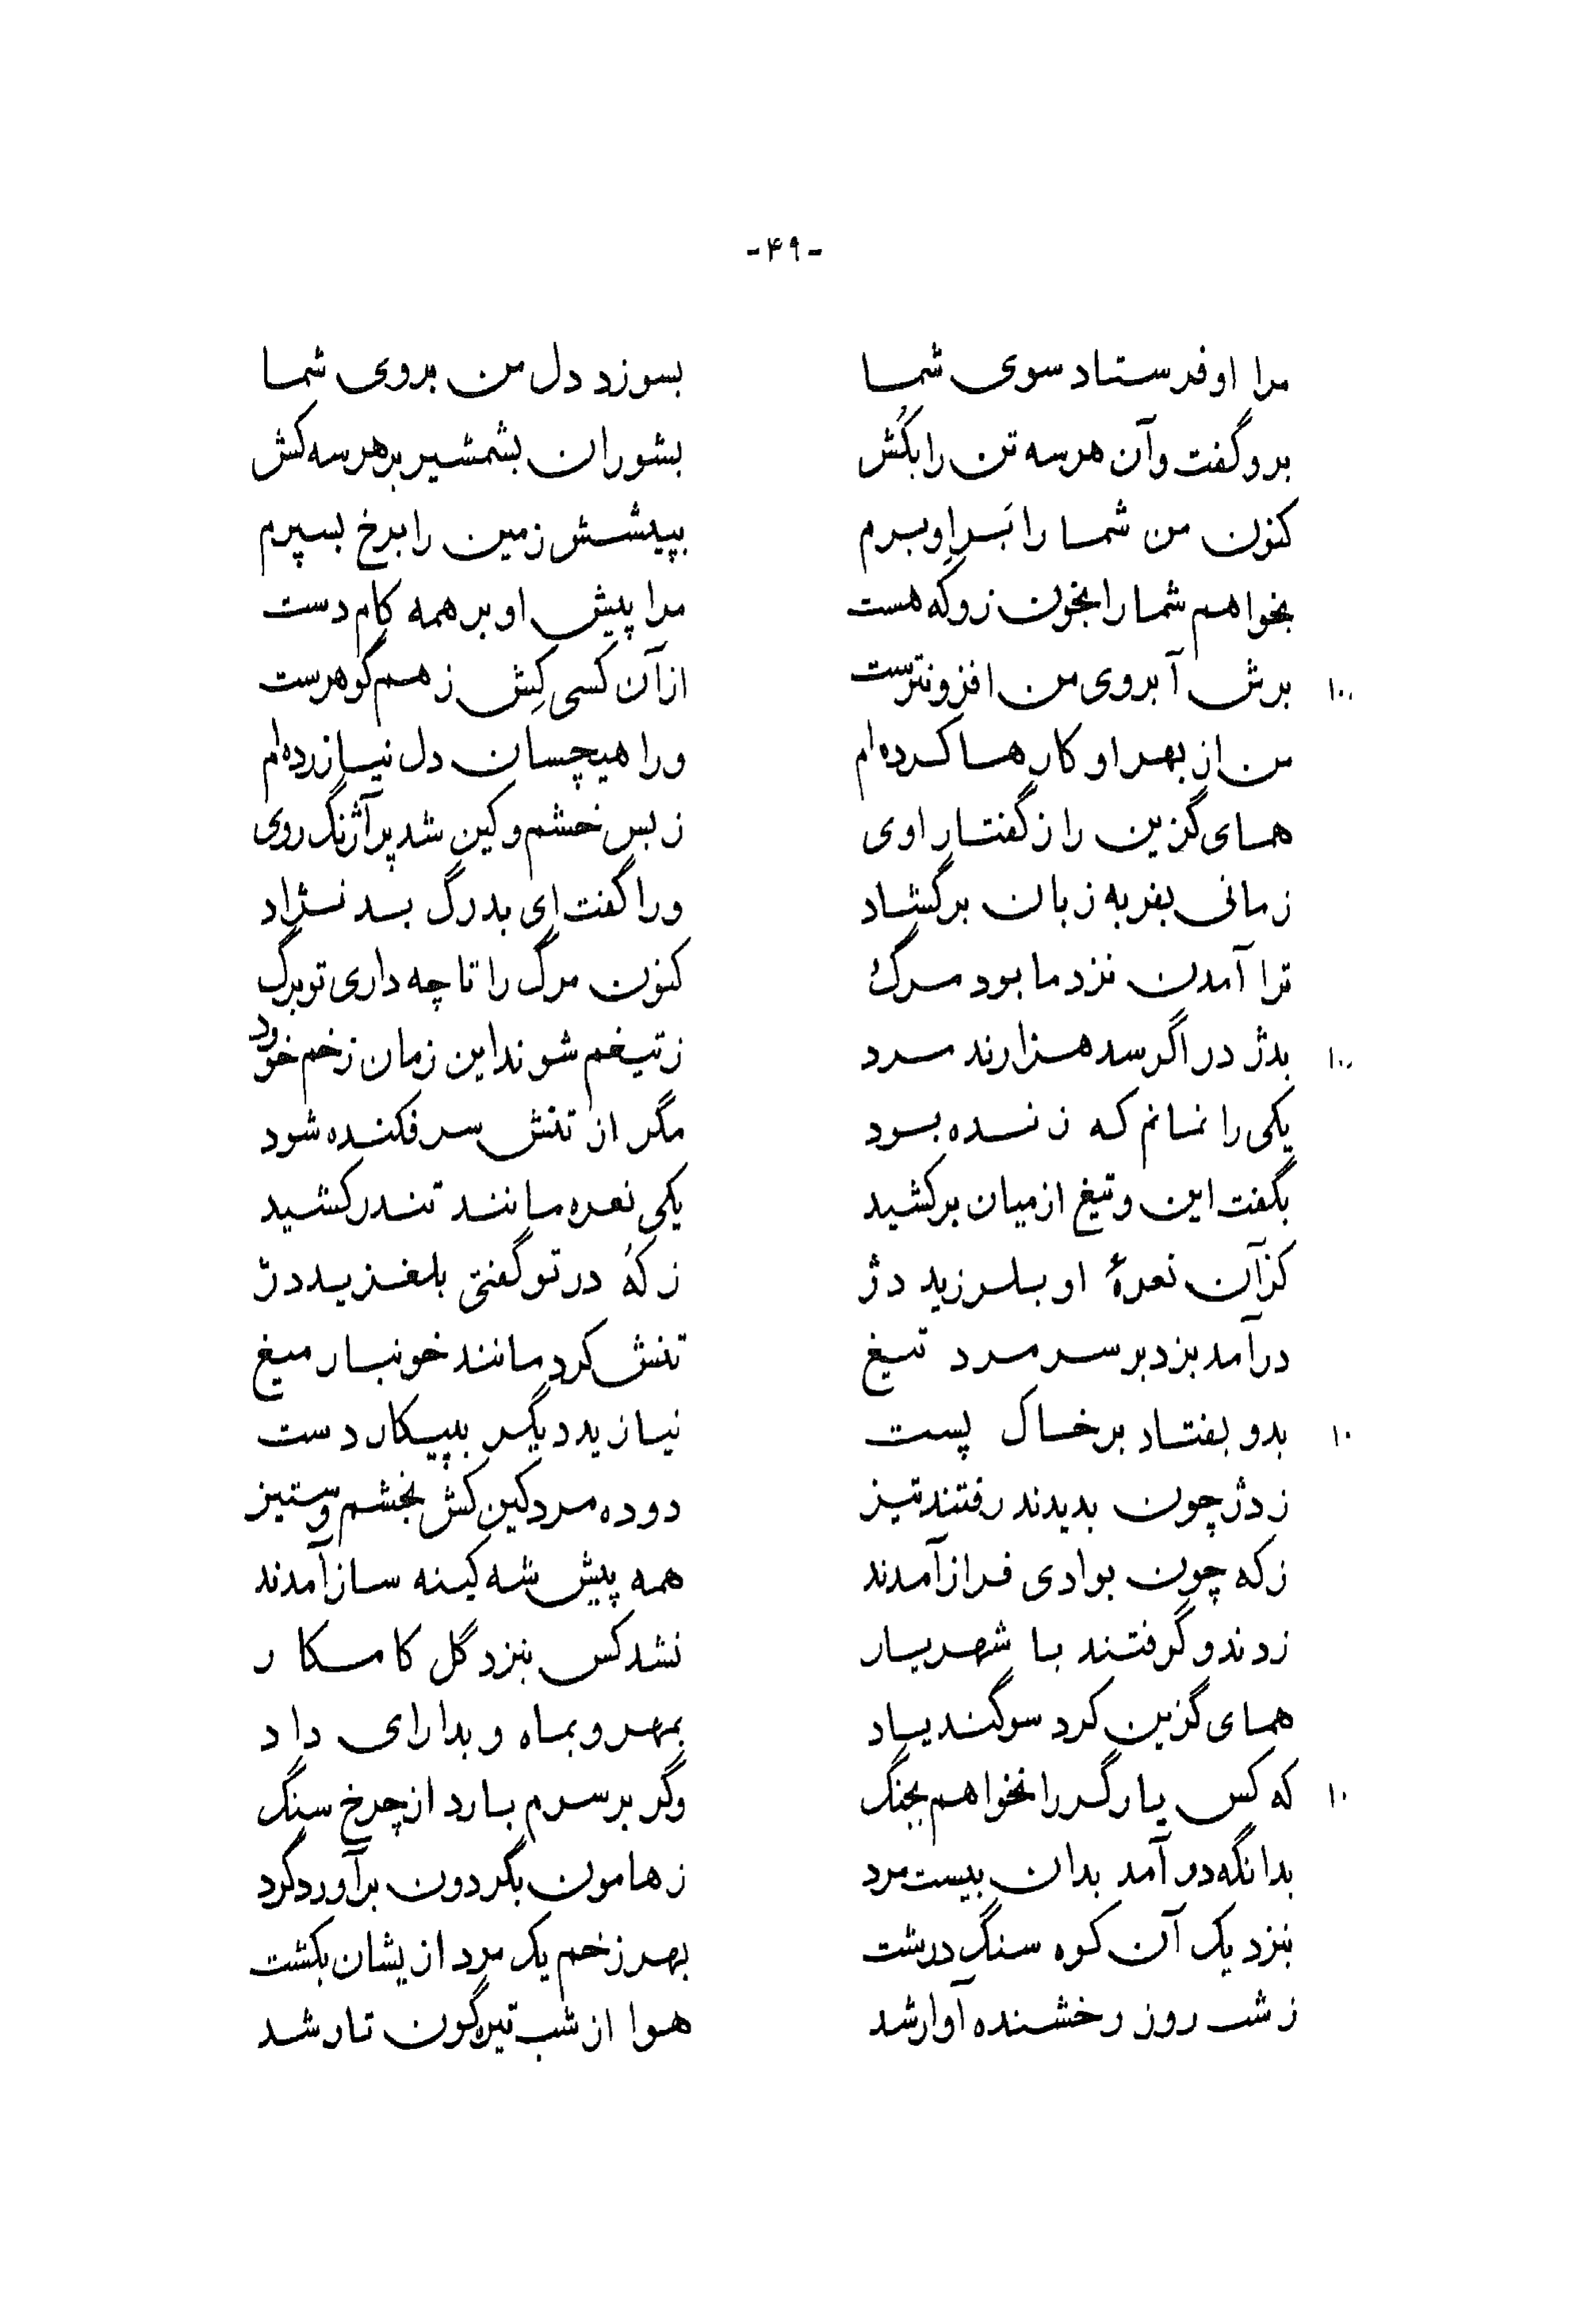 -۴۹-
مرا او فرستاد سوی شما بسوزد دل من بروی شما
برو گفت و آن هر سه تن را بکُش بشوران بشمشیر بر هر سه کش
کنون من شما را بَرِ او برم بپیشش زمین را برخ بسپرم
بخواهم شما را بخون زو که هست مرا پیش او بر همه کام دست
۱۰ برش آبروی من افزونترست از آن کسی کِش ز هم گوهرست
من از بهر او کارها کرده‌ام ورا هیچسان دل نیازرده‌ام
همای گزین را ز گفتار اوی ز بس خشم و کین شد پر آژنگ روی
زمانی بفریه زبان برگشاد ورا گفت ای بدرگ بد نژاد
ترا آمدن نزد ما بود مرگ کنون مرگ را تا چه داری تو برگ
۱۰ بدژ در اگر سد هزارند مرد ز تیغم شوند این زمان زخم خورد
یکی را نمانم که زنده بود مگر از تنش سر فکنده شود
بگفت این و تیغ از میان برکشید یکی نعره مانند تندر کشید
کز آن نعرهٔ او بلرزید دژ ز کُه در تو گفتی بلغزید دژ
درآمد بزد بر سر مرد تیغ تنش کرد مانند خونبار میغ
۱۰ بدو بفتاد بر خاک پست نیازید دیگر بپیکار دست
ز دژ چون بدیدند رفتند تیز دو ده مرد کین کش بخشم و ستیز
ز که چون بوادی فراز آمدند همه پیش شه کینه ساز آمدند
زدند و گرفتند با شهریار نشد کس بنزد گل کامکار
همای گزین کرد سوگند یاد بمهر و بماه و بدارای داد
۱۰ که کس یارگر را نخواهم بجنگ وگر بر سرم بارد از چرخ سنگ
بدانگه درآمد بدان بیست مرد ز هامون بگردون برآورد گرد
بنزدیک آن کوه سنگ درشت بهر زخم یک مرد ازیشان بکشت
ز شب روز رخشنده آوار شد هوا از شب تیره‌گون تار شد